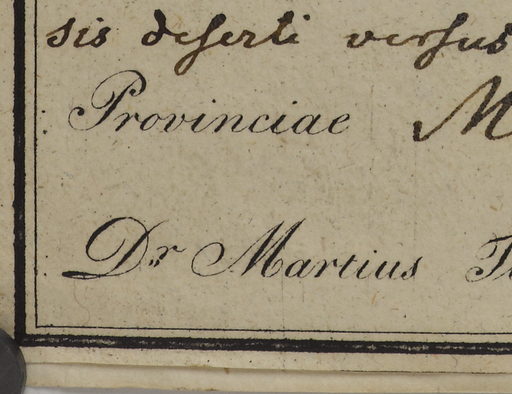 sis deserti versus
Provinciae M
Dr Martius